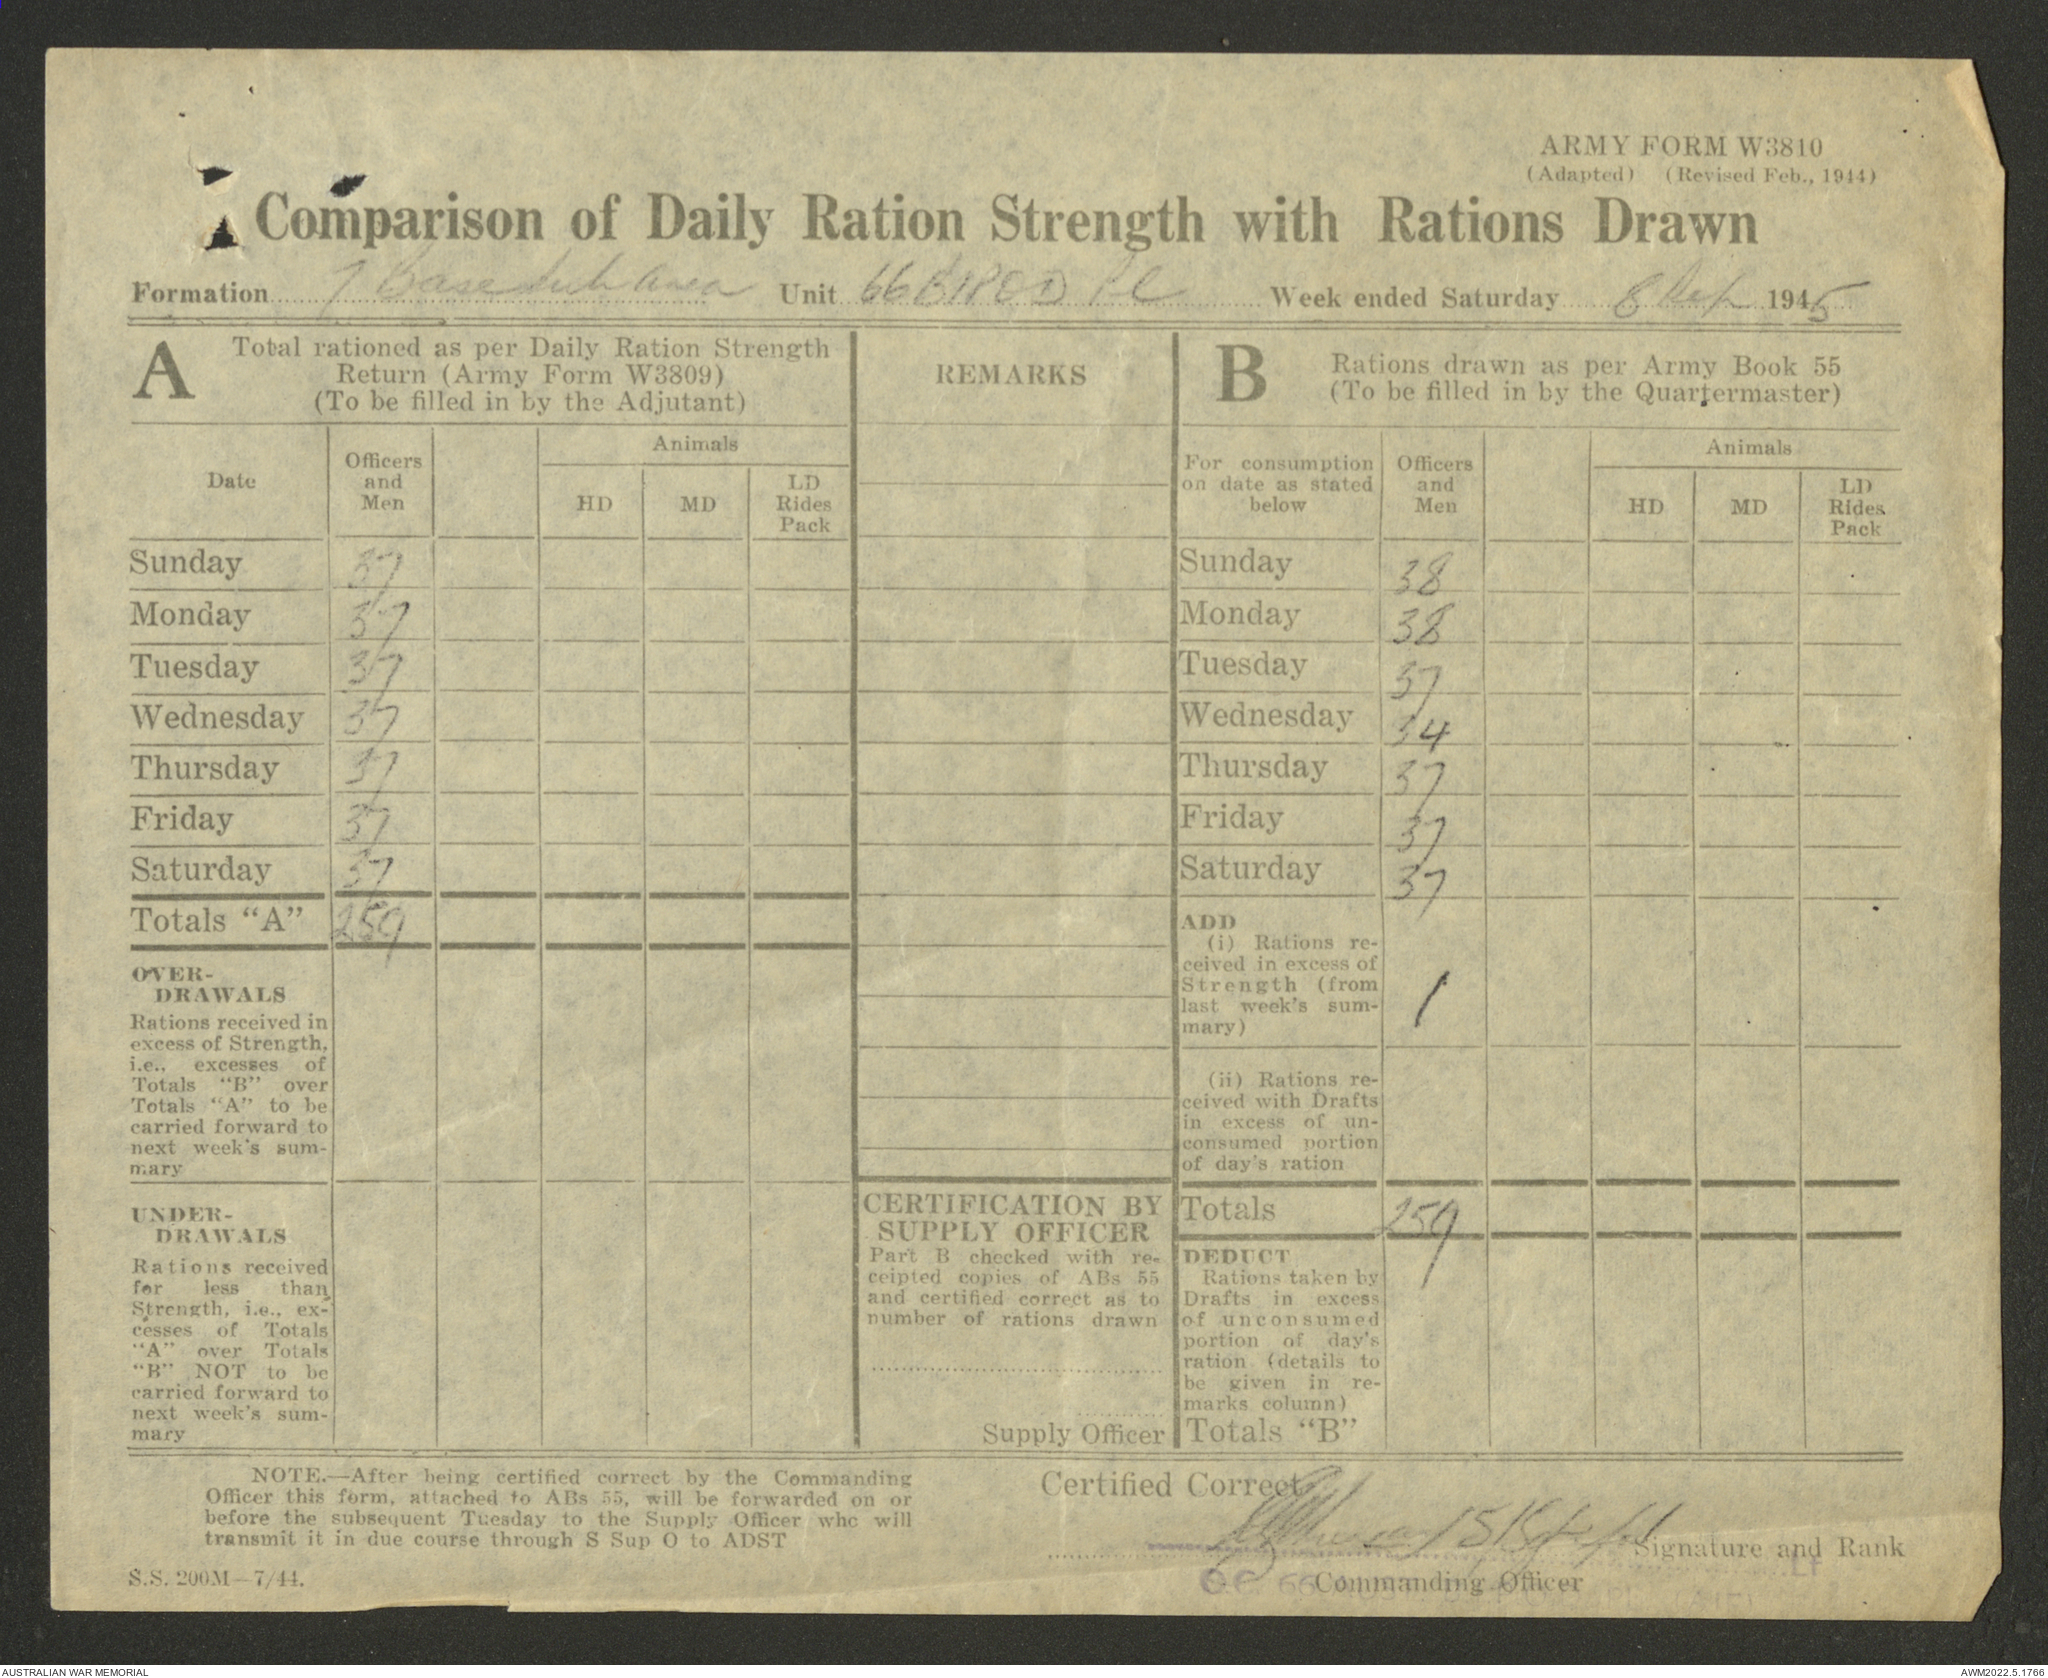 ARMY FORM W3810
(Adapted) (Revised Feb., 1944)
Comparison of Daily Ration Strength with Rations Drawn
Formation 7 Base Sub Area Unit 66 Week ended Saturday 8 Sep 1945
A
Total rationed as per Daily Ration Strength
Return (Army Form W3809)
(To be filled in by the Adjutant)
Date
Officers
and
Men
Animals
HD
MD
LD
Rides
Pack
Sunday 37
Monday 37
Tuesday 37
Wednesday 37
Thursday 37
Friday 37
Saturday 37
Totals "A" 259
OVER-
DRAWALS
Rations received in
excess of Strength,
i.e., excesses of
Totals "B" over
Totals "A" to be
carried forward to
next week's sum-
mary
UNDER-
DRAWALS
Rations received
for less than
Strength, i.e., ex-
cesses of Totals
"A" over Totals
"B" NOT to be
carried forward to
next week's sum-
mary
REMARKS
CERTIFICATION BY
SUPPLY OFFICER
Part B checked with re-
ceipted copies of ABs 55
and certified correct as to
number of rations drawn
Supply Officer
B
Rations drawn as per Army Book 55
(To be filled in by the Quartermaster)
For consumption
on date as stated
below
Officers
and
Men
Animals
HD
MD
LD
Rides
Pack
Sunday 38
Monday 38
Tuesday 37
Wednesday 34
Thursday 37
Friday 37
Saturday 37
ADD
(i) Rations re-
ceived in excess of
Strength (from
last week's sum-
mary) 1
(ii) Rations re-
ceived with Drafts
in excess of un-
consumed portion
of day's ration
Totals 259
DEDUCT
Rations taken by
Drafts in excess
of unconsumed
portion of day's
ration (details to
be given in re-
marks column)
Totals "B"
NOTE.—After being certified correct by the Commanding
Officer this form, attached to ABs 55, will be forwarded on or
before the subsequent Tuesday to the Supply Officer who will
transmit it in due course through S Sup O to ADST
S.S. 200M—7/44.
Certified Correct
Signature and Rank
LT
OC 66
Commanding Officer
AUSTRALIAN WAR MEMORIAL
AWM2022.5.1766